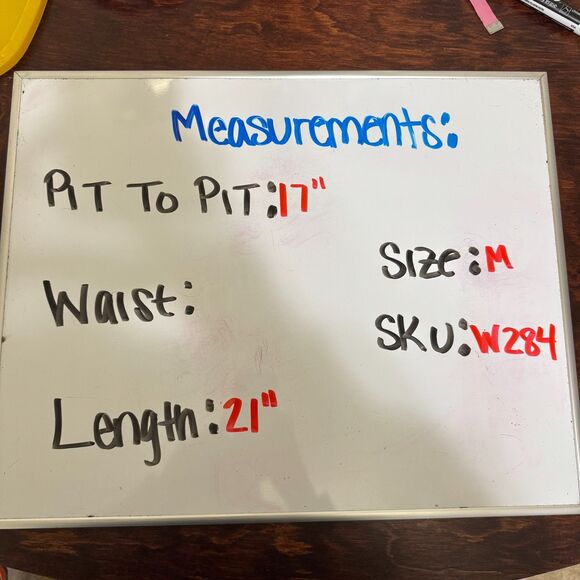 Measurements:
PiT To PiT: 17"
Size: M
Waist:
SKU: W284
Length: 21"